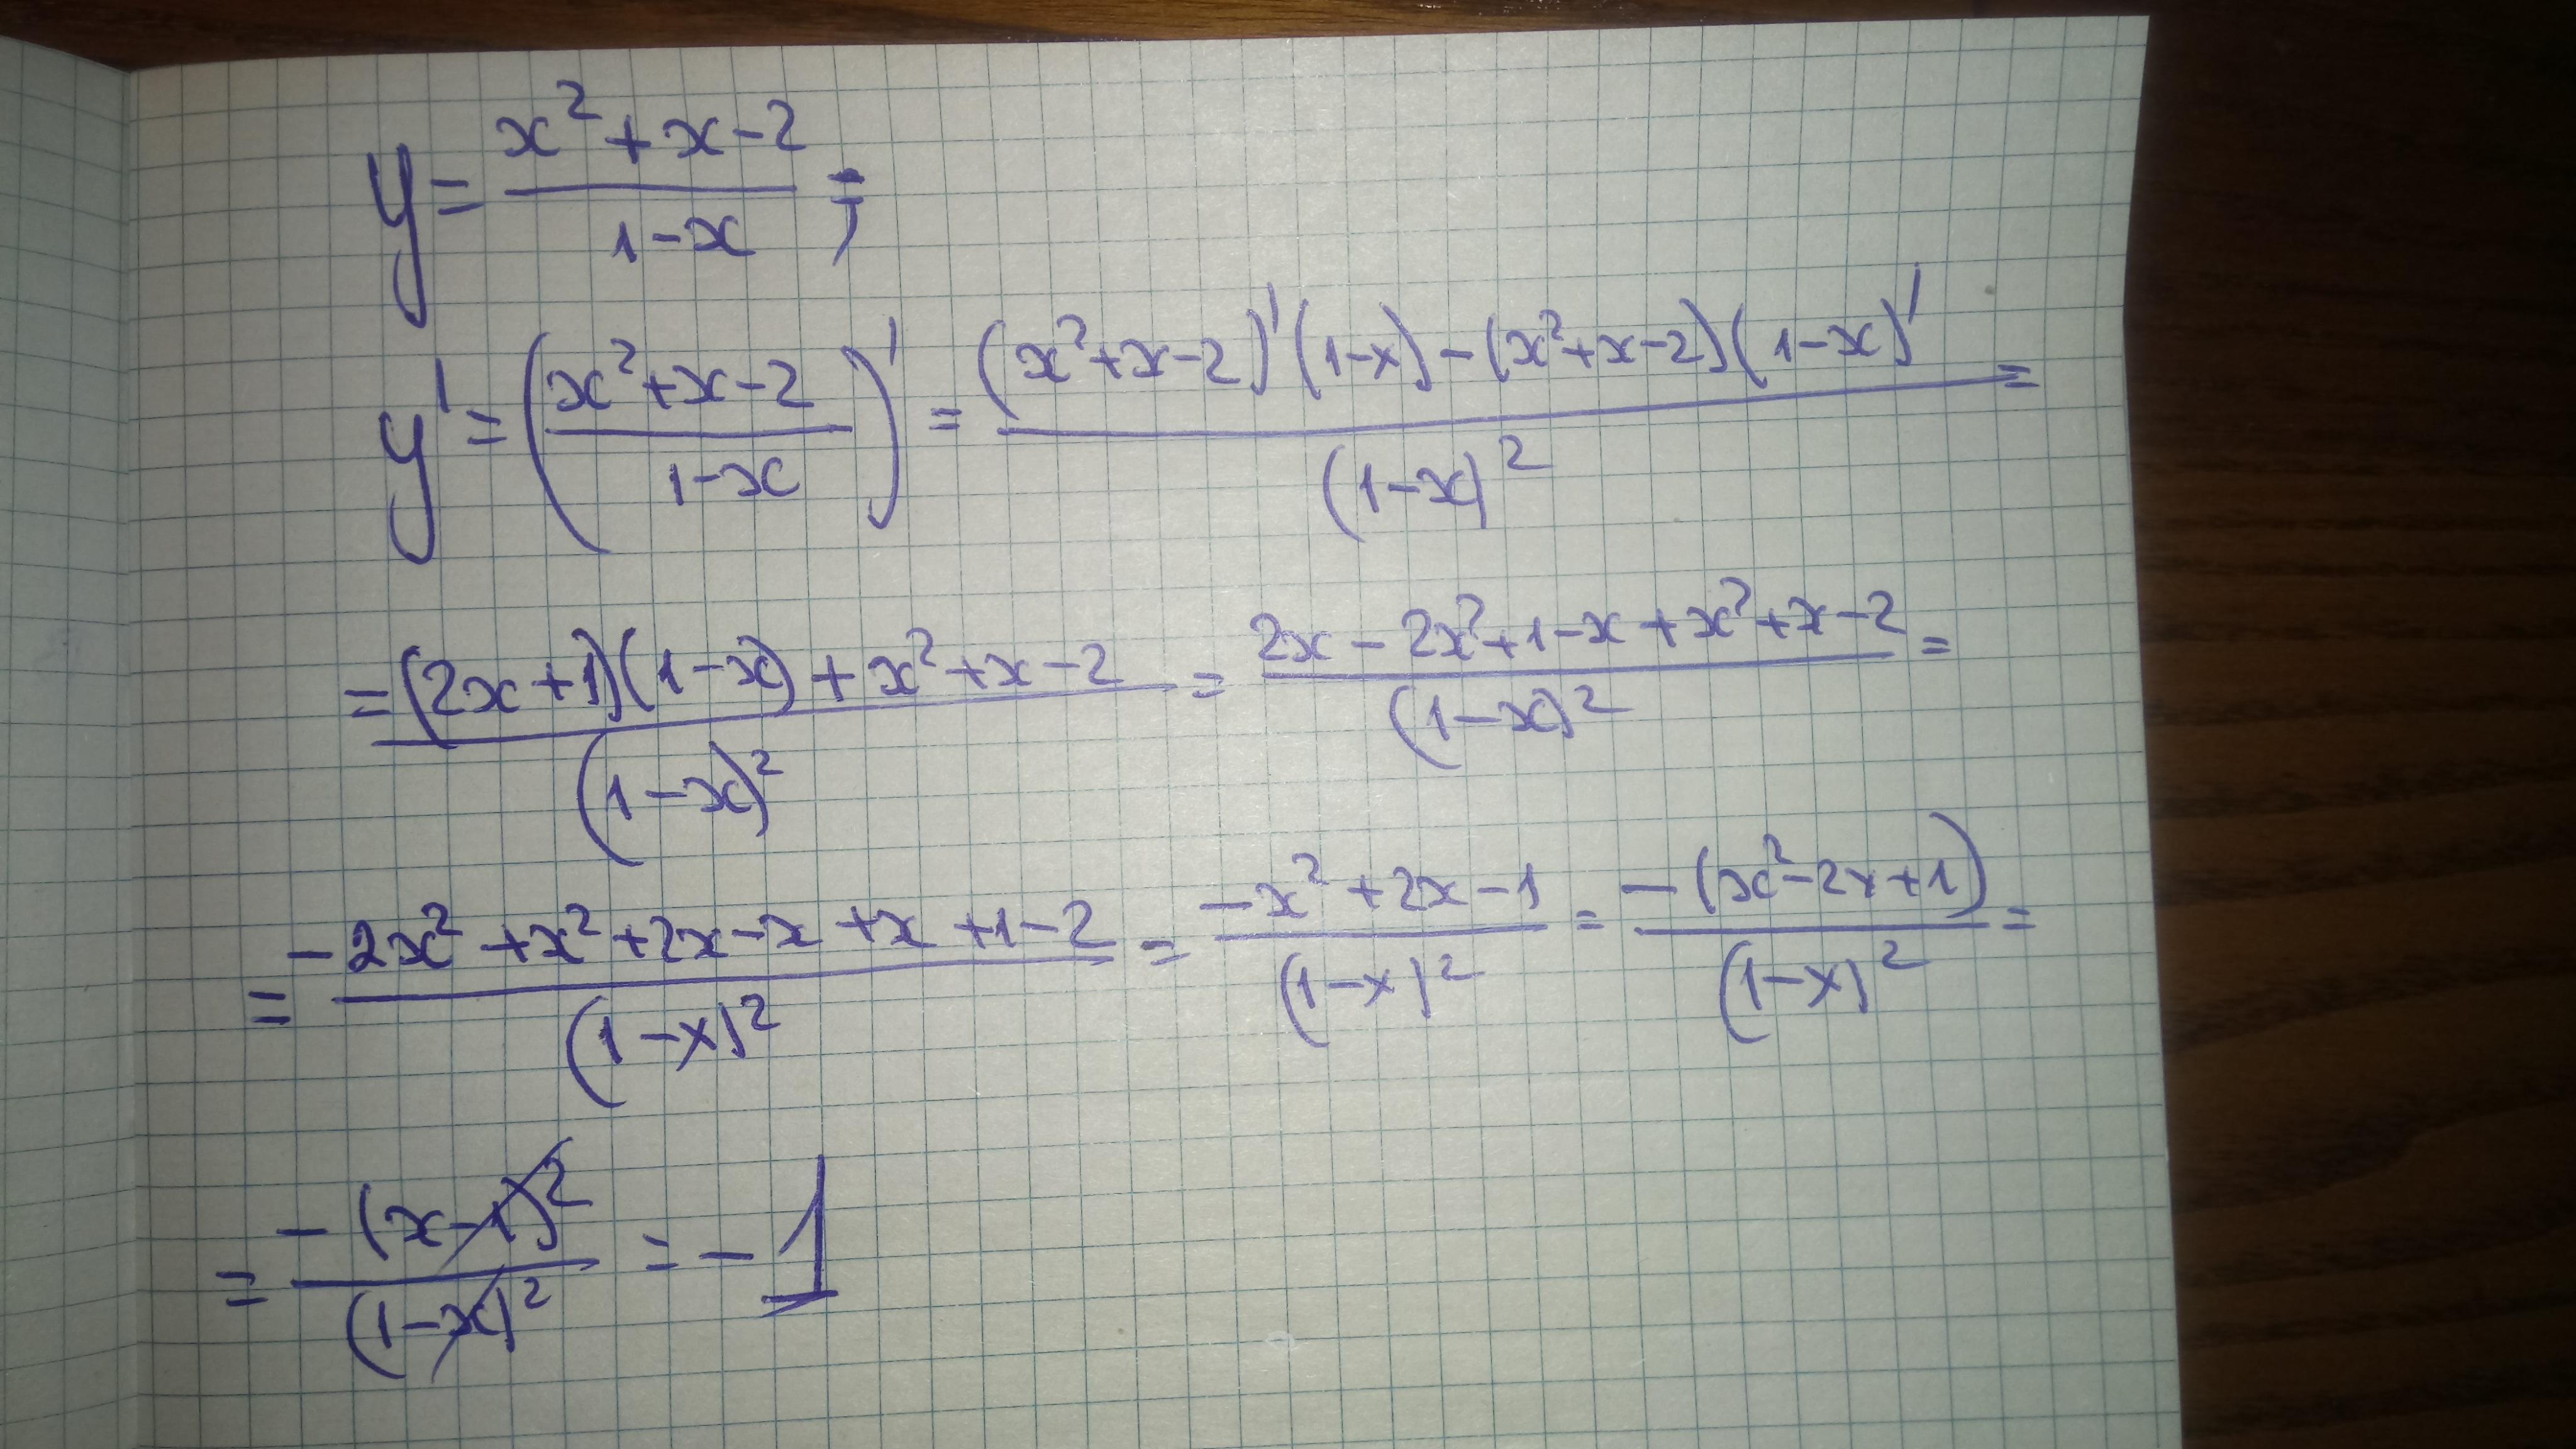 y = (x² + x - 2)/(1 - x);
y' = ((x² + x - 2)/(1 - x))' = ((x² + x - 2)'(1 - x) - (x² + x - 2)(1 - x)')/(1 - x)² =
= ((2x + 1)(1 - x) + x² + x - 2)/(1 - x)² = (2x - 2x² + 1 - x + x² + x - 2)/(1 - x)² =
= (-2x² + x² + 2x - x + x + 1 - 2)/(1 - x)² = (-x² + 2x - 1)/(1 - x)² = (-(x² - 2x + 1))/(1 - x)² =
= (-(x - 1)²)/(1 - x)² = -1